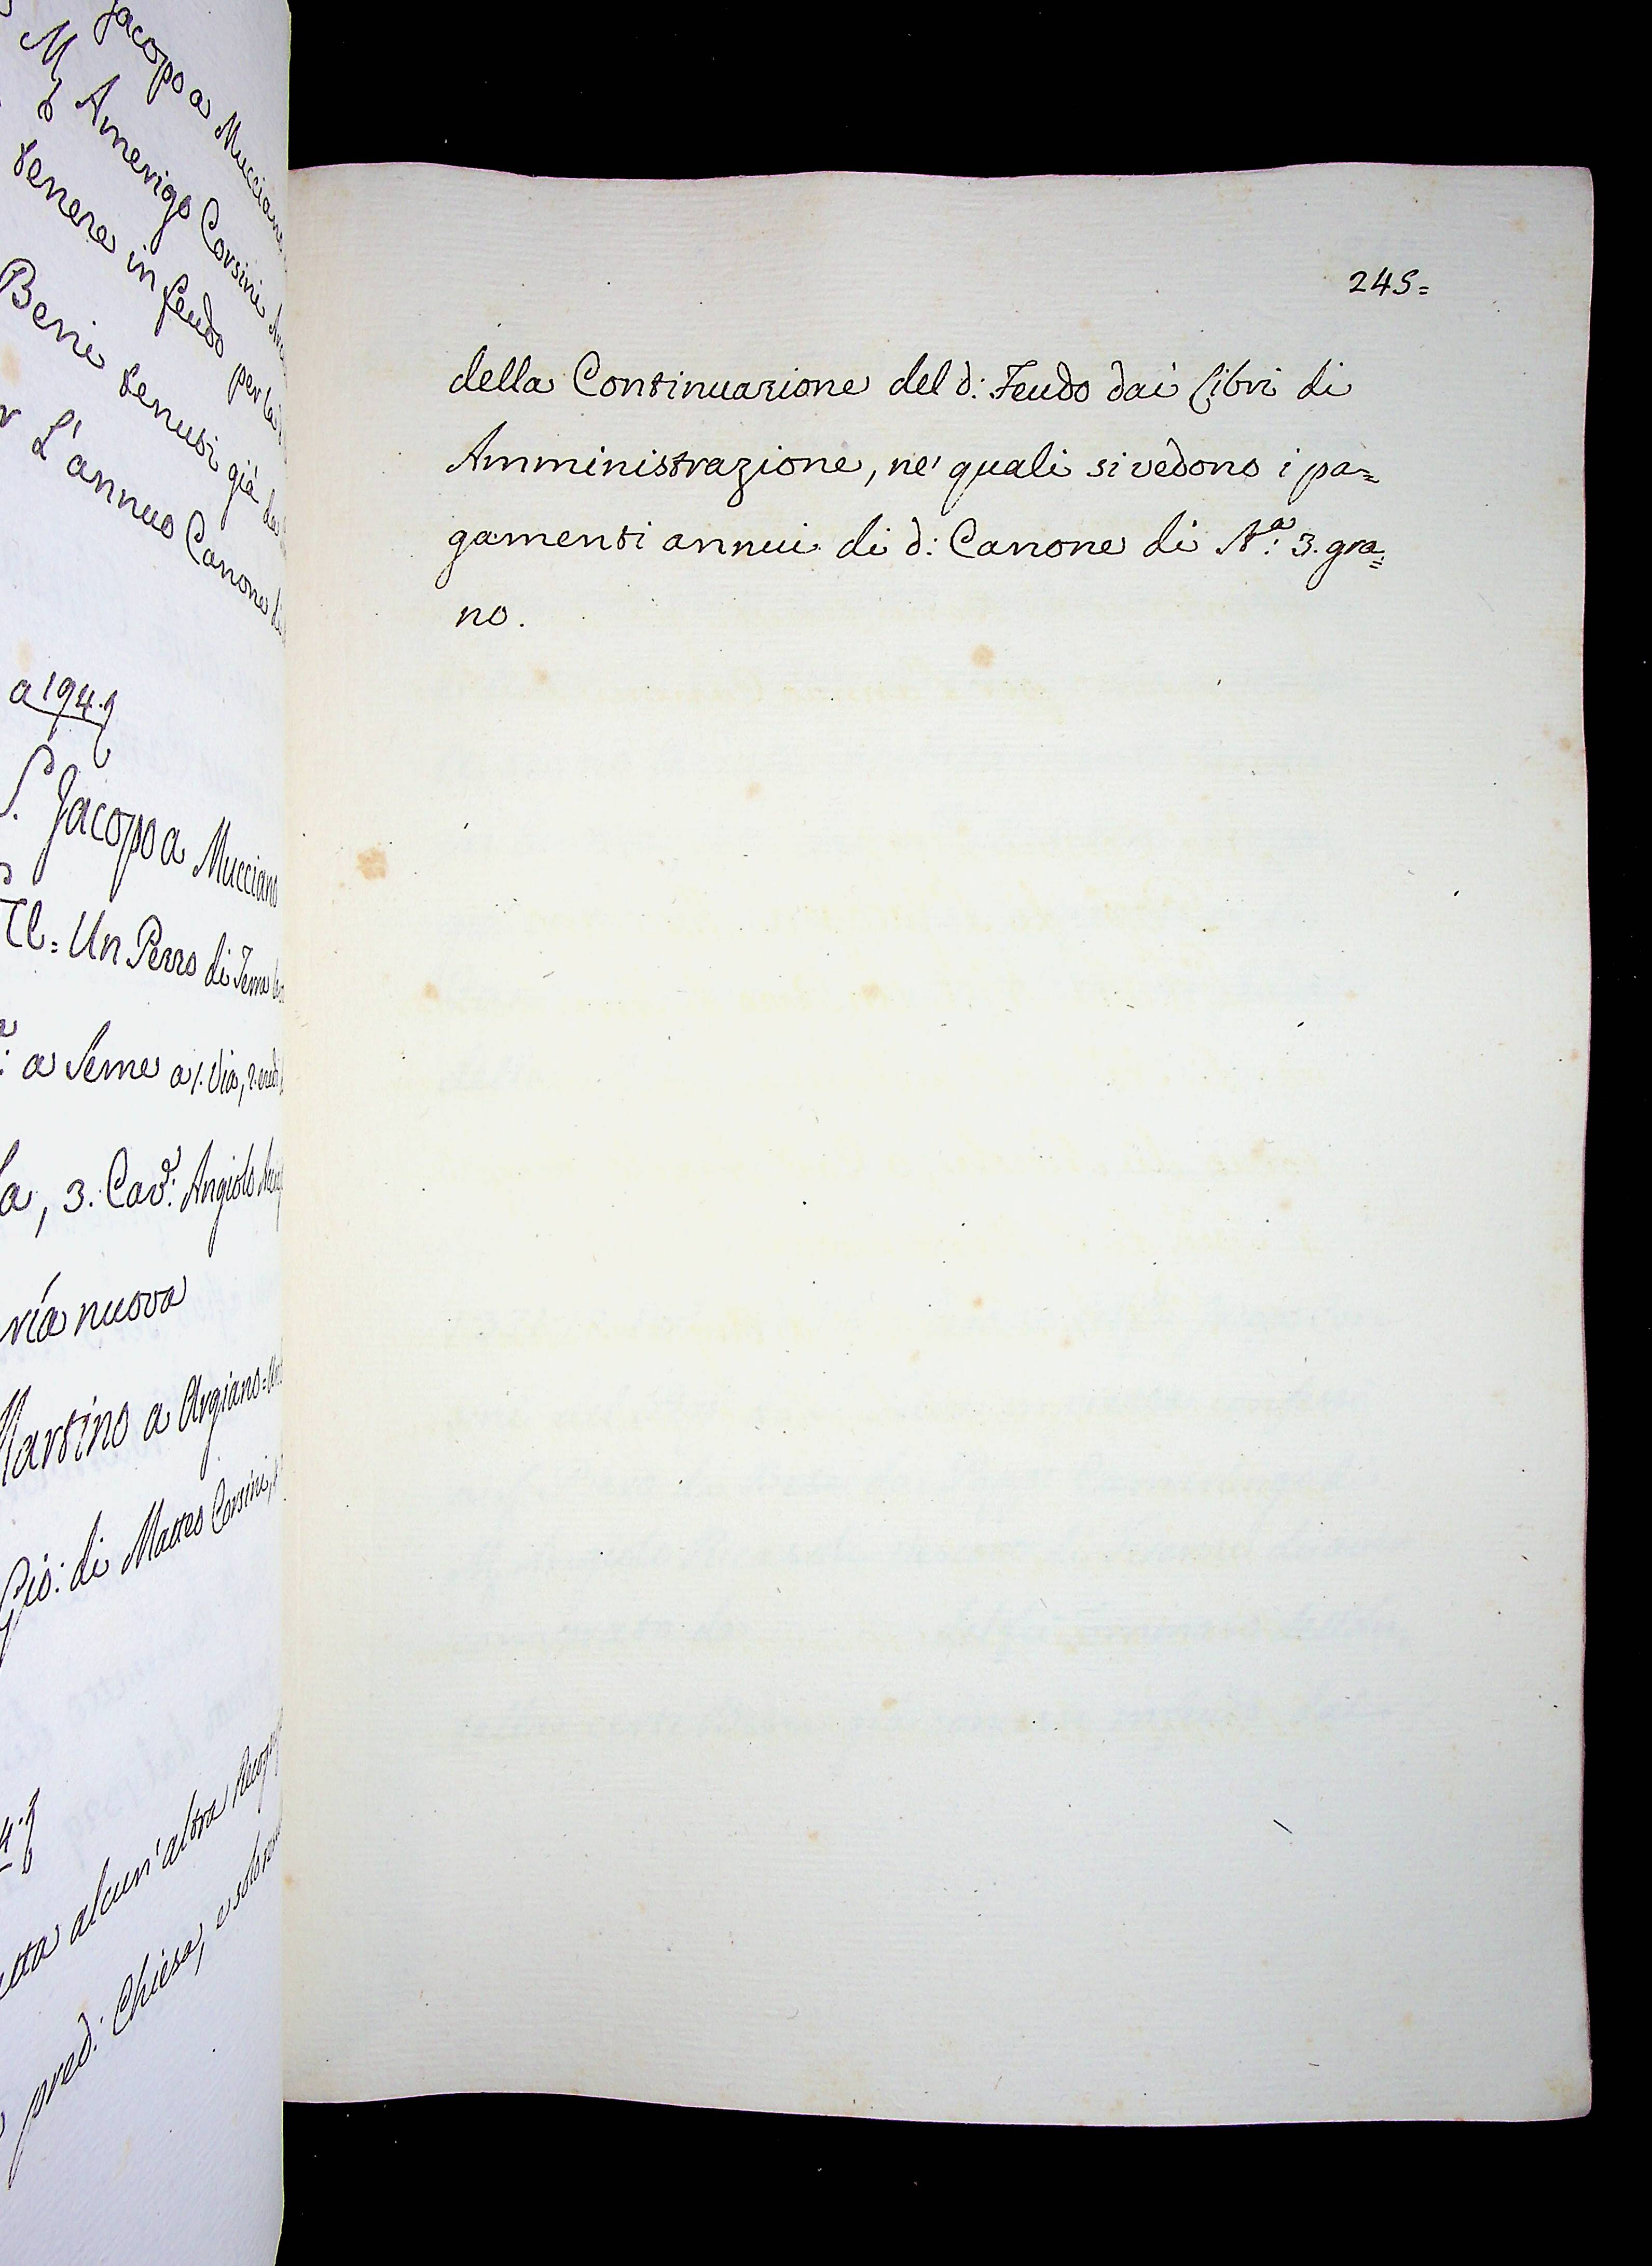 Jacopo a Mucciano
M Amerigo Corsini
tenere in feudo per la
Beni tenuti già da
L'annuo Canone di
a 194.
S. Jacopo a Mucciano
Un Pezzo di Terra
: a Seme a 1. Via, 2.
la, 3. Cav.: Angiolo
ria nuova
Martino a Argiano=
Gio: di Matteo Corsini,
4.
etta alcun'altra
pred: Chiesa, e solo
245=
della Continuazione del d: Feudo dai Libri di
Amministrazione, ne' quali si vedono i pa=
gamenti annui di d: Canone di St.ª: 3. gra=
no.